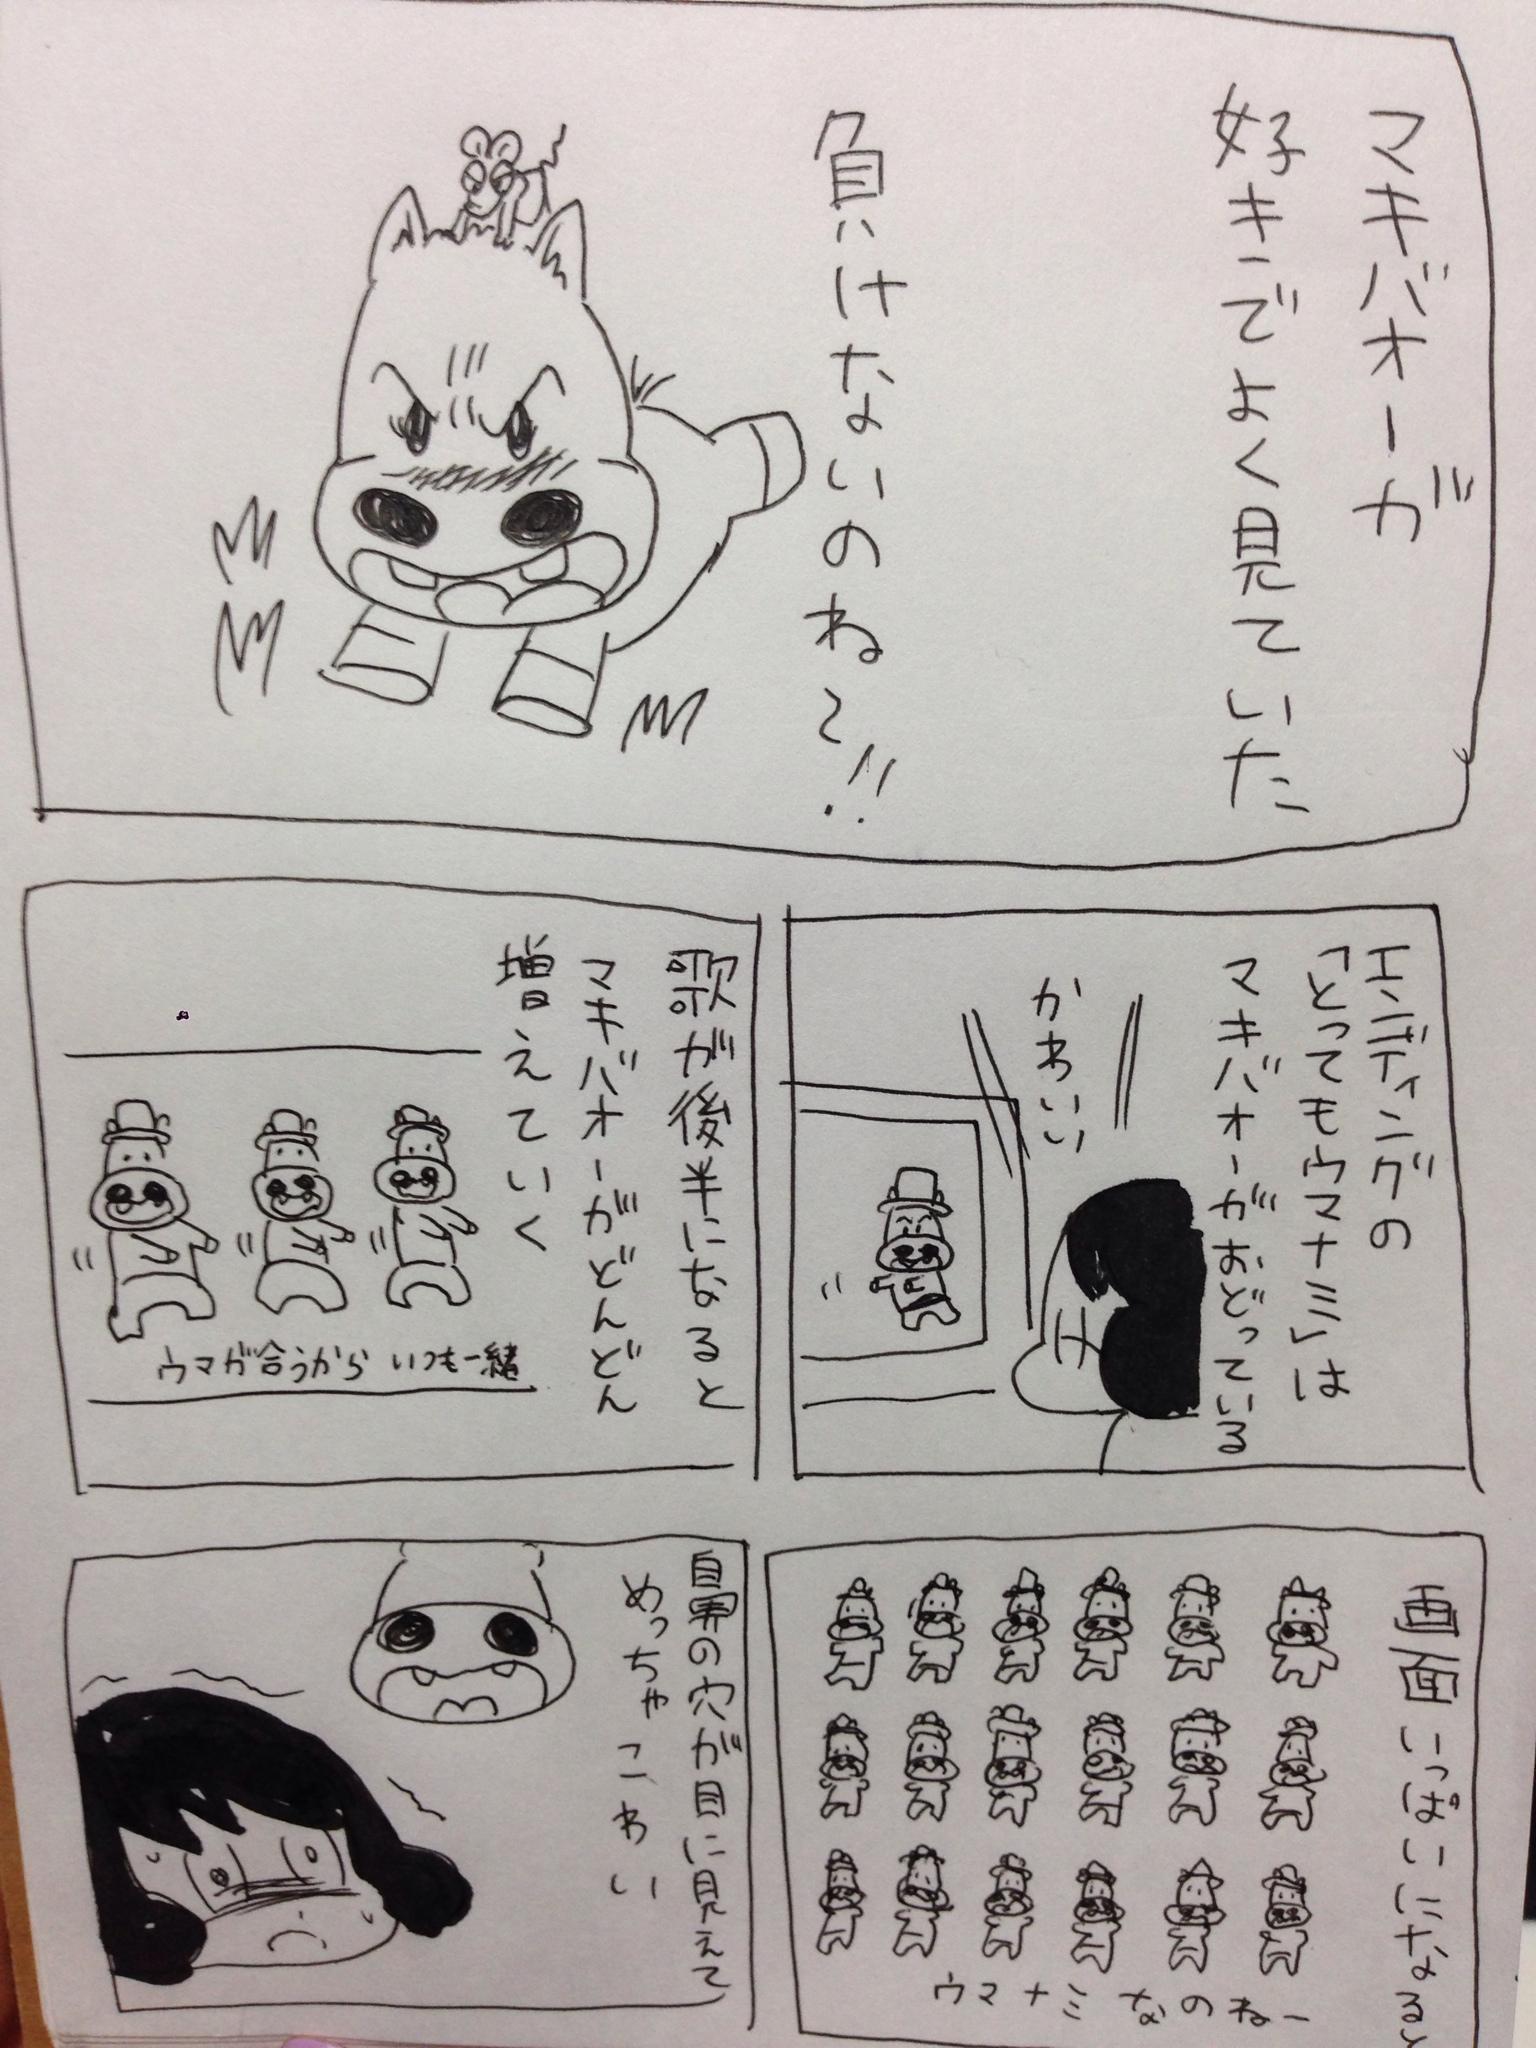 マキバオーが
好きでよく見ていた
負けないのね〜!!
エンディングの
「とってもウマナミ」は
マキバオーがおどっている
かわいい
歌が後半になると
マキバオーがどんどん
増えていく
ウマが合うから いつも一緒
画面いっぱいになると
ウマナミなのねー
鼻の穴が目に見えて
めっちゃこわい